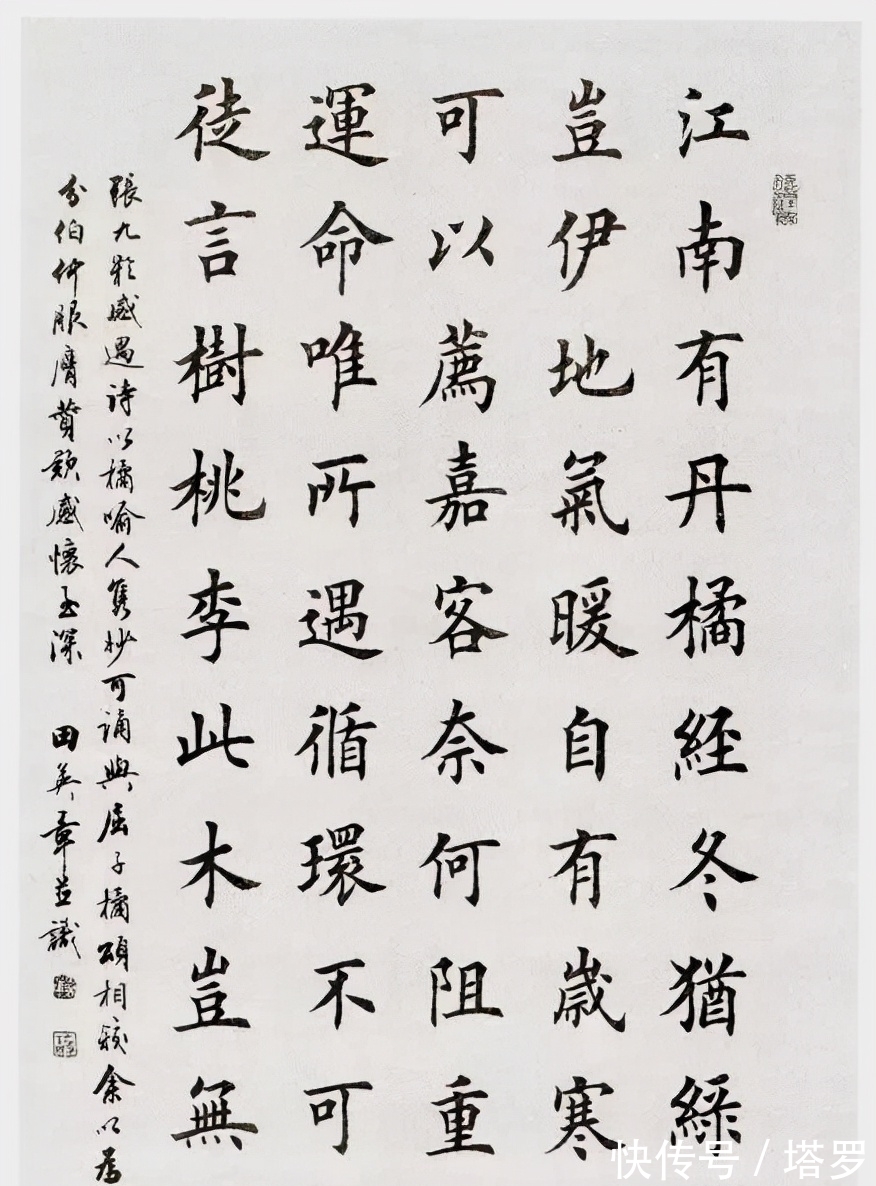 江南有丹橘經冬猶綠
豈伊地氣暖自有歲寒
可以薦嘉客奈何阻重
運命唯所遇循環不可
徒言樹桃李此木豈無
張九齡感遇詩以橘喻人雋妙可誦與屈子橘頌相較余以為
分伯仲服膺贊頌感懷至深 田英章並識
快传号 / 塔罗